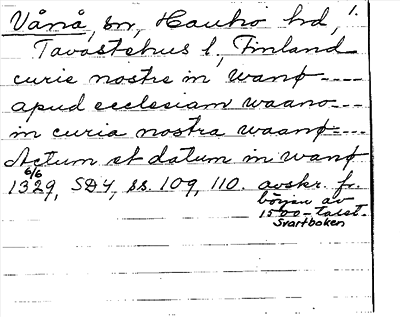 Vånå, sn, Hauho hd, 1.
Tavastehus l, Finland
curie nostre in wanø ----
apud ecclesiam waano---
in curia nostra waanø----
Actum et datum in wanø
6/6
1329, SD4, ss. 109, 110. avskr. fr.
början av
1500-talet.
Svartboken